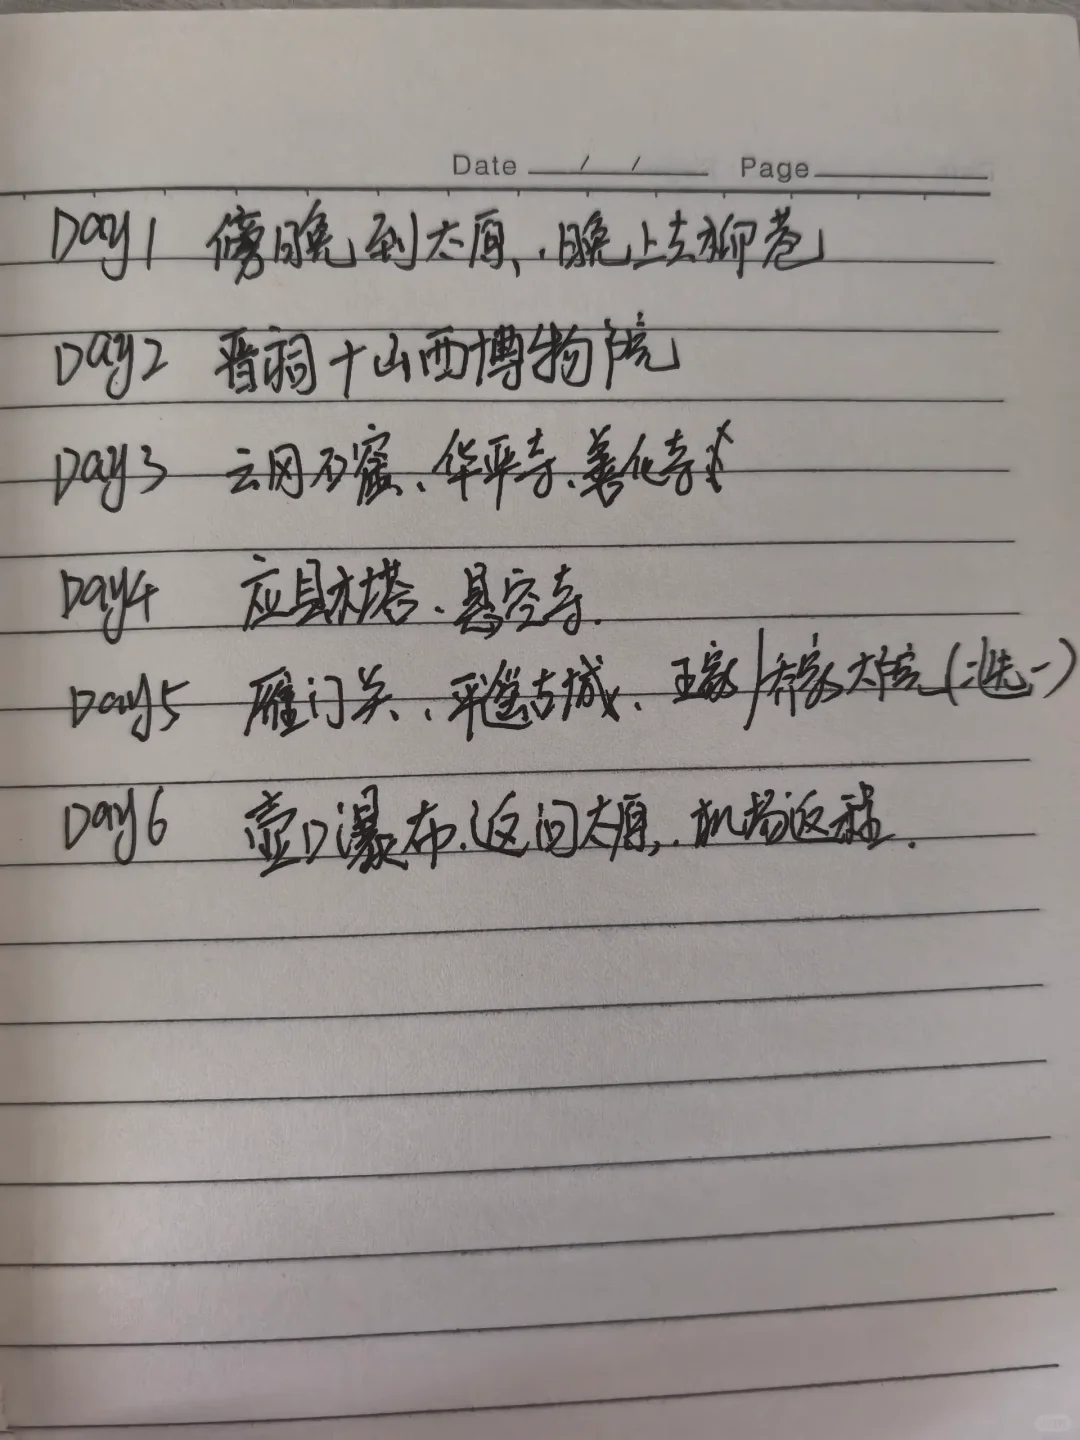 Date / / Page
Day1 傍晚到太原,晚上去柳巷
Day2 晋祠+山西博物院
Day3 云冈石窟、华严寺、善化寺
Day4 应县木塔、悬空寺.
Day5 雁门关、平遥古城、王家/乔家大院(二选一)
Day6 壶口瀑布、返回太原,机场返程.